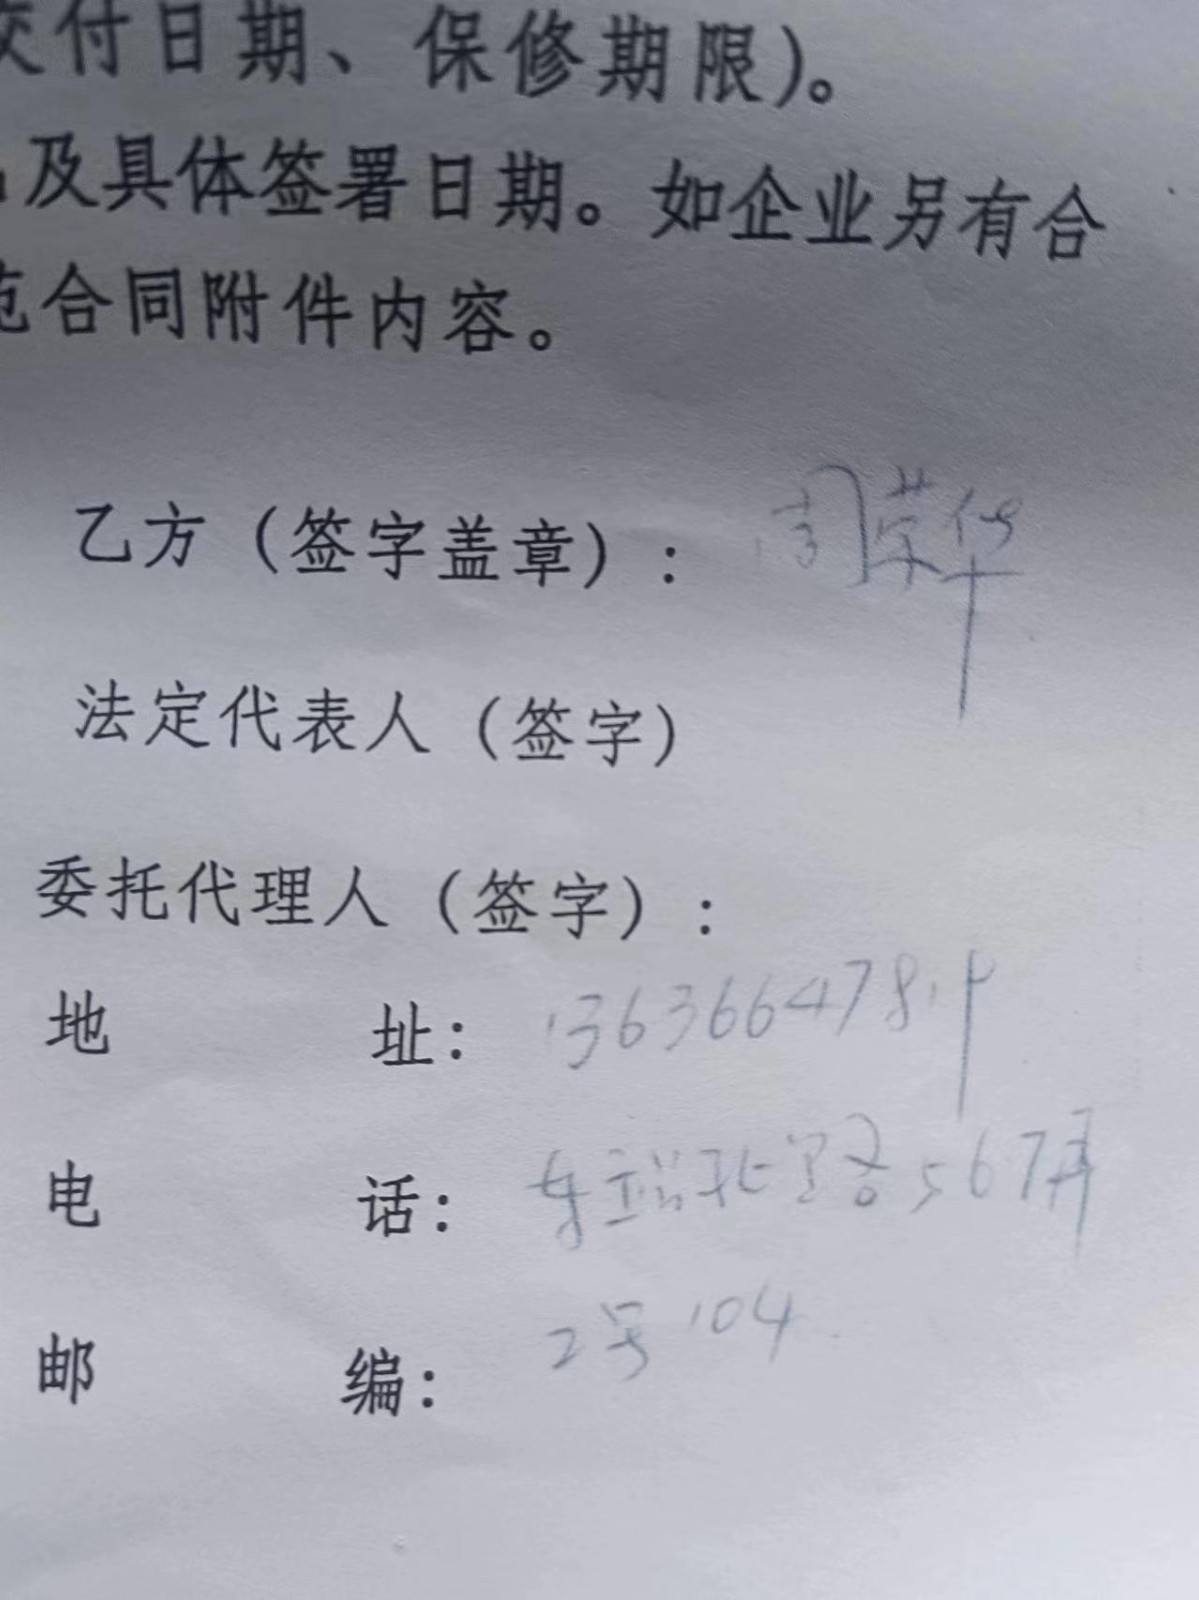 交付日期、保修期限)。
及具体签署日期。如企业另有合
范合同附件内容。
乙方（签字盖章）: 周荣华
法定代表人（签字）
委托代理人（签字）:
地 址: 13636647819
电 话: 车站北路567弄
邮 编: 2号104